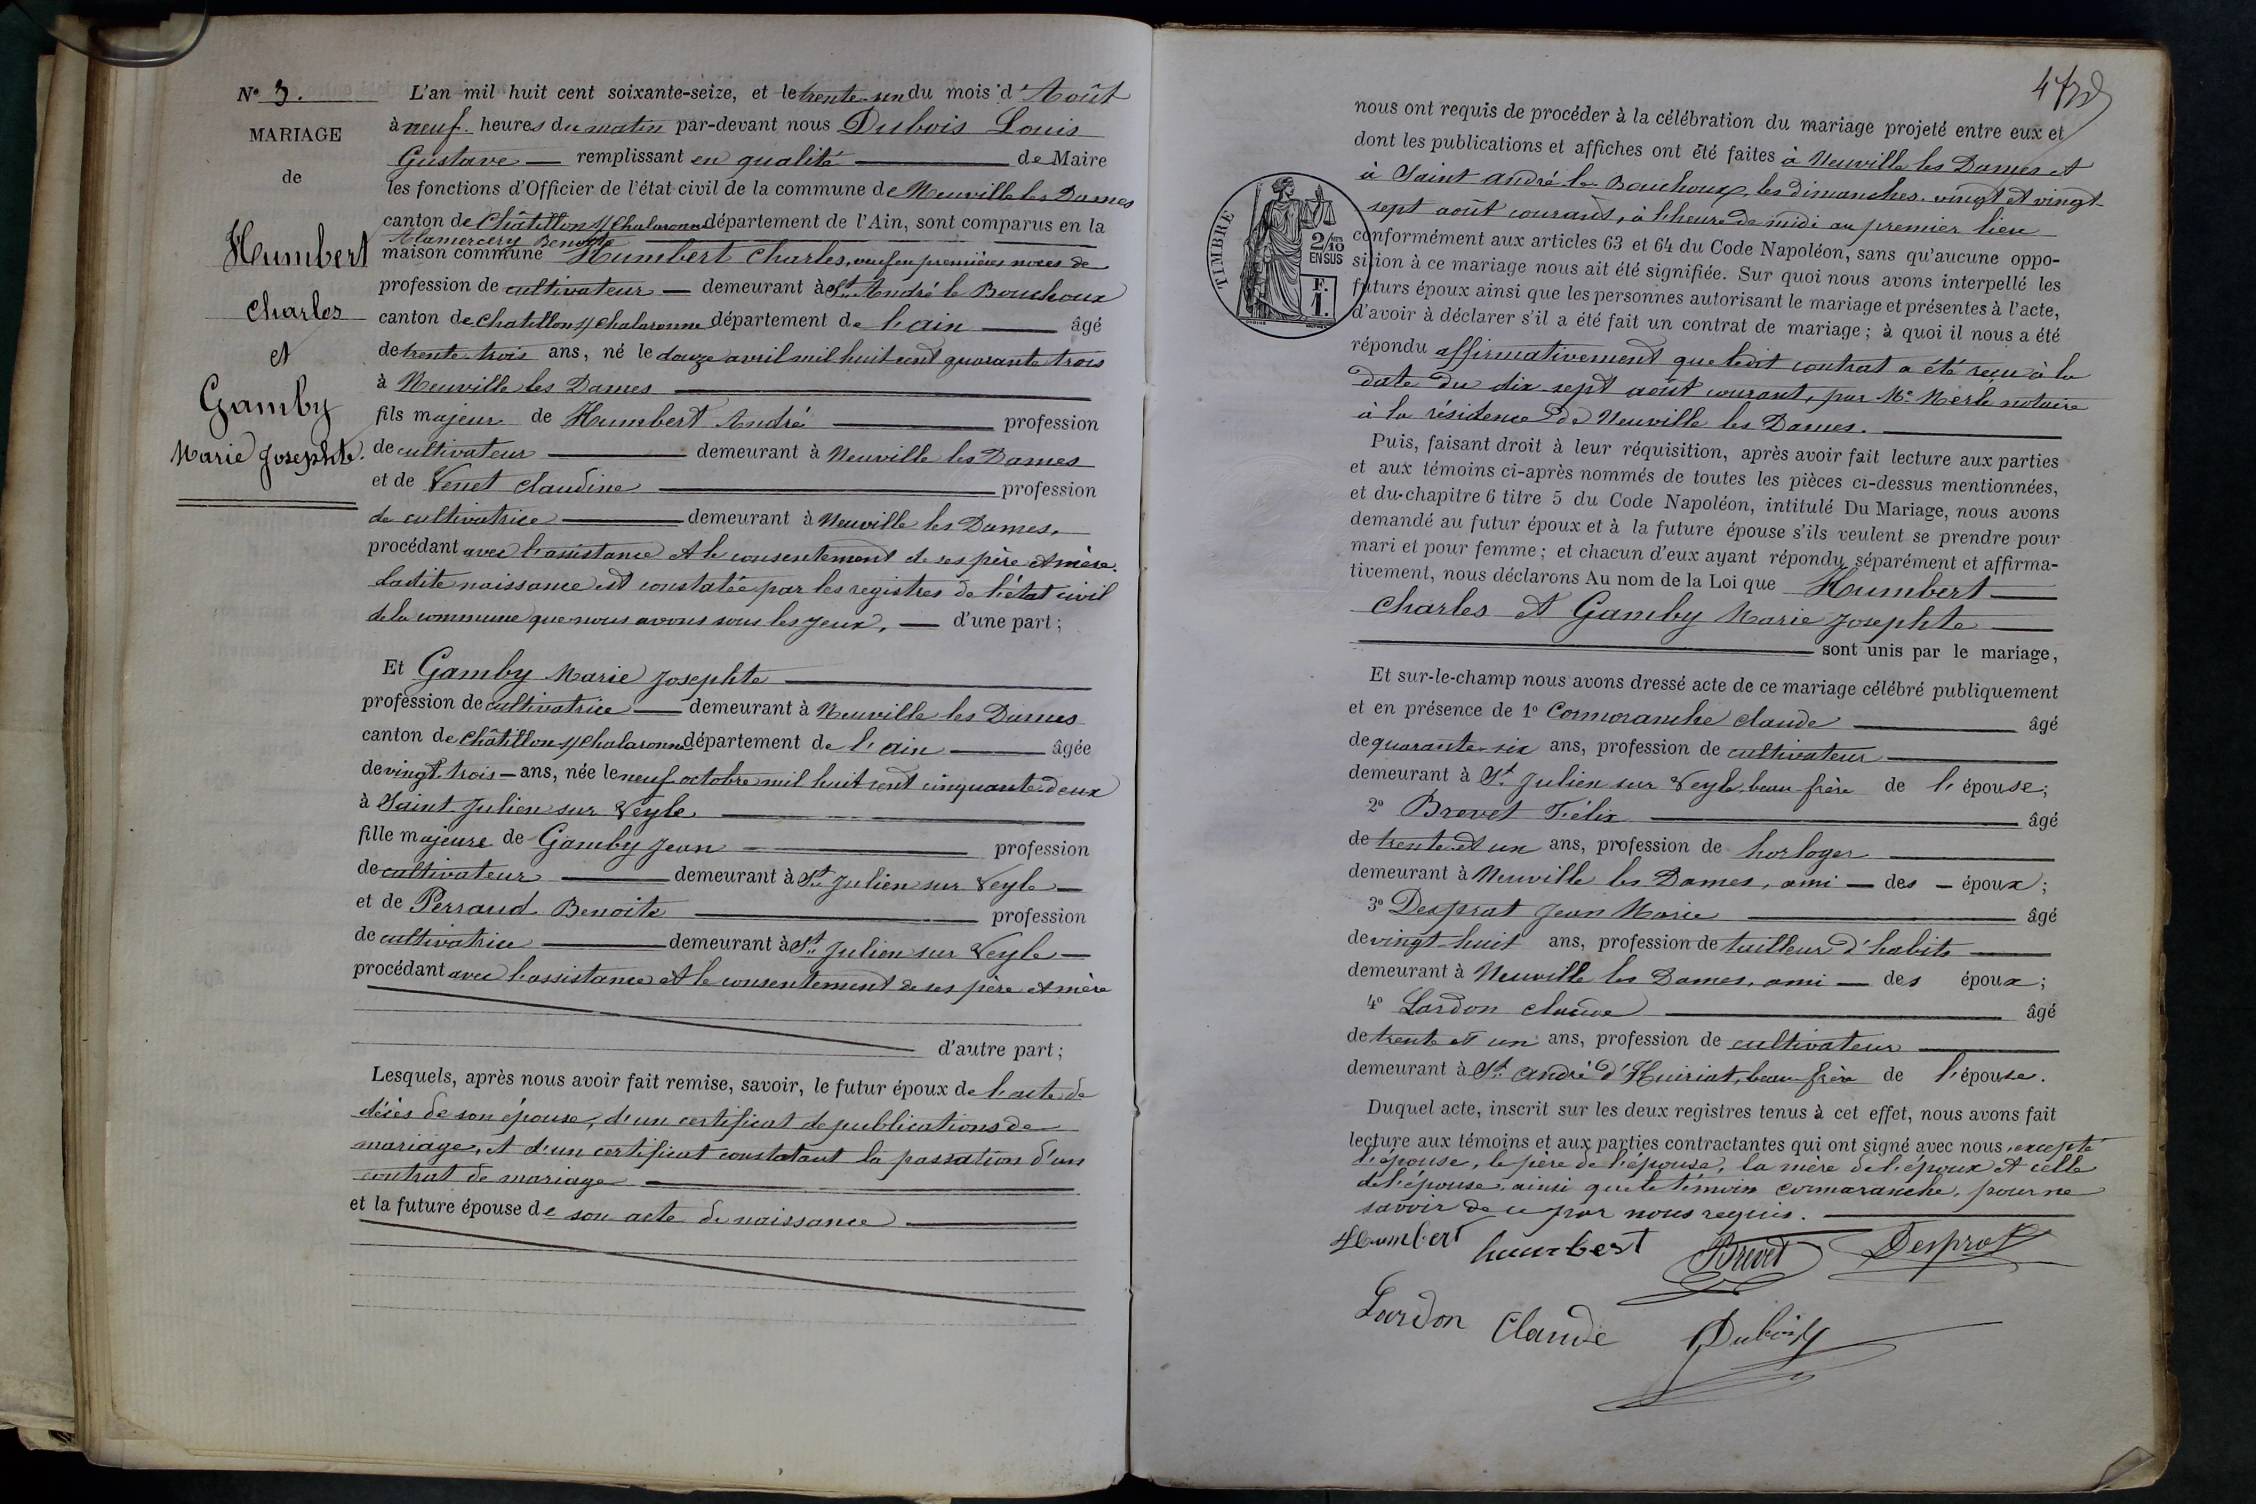 N° 3.
MARIAGE
de
Humbert
Charles
et
Gamby
Marie Josephte.
L'an mil huit cent soixante-seize, et le trente-un du mois d'Août
à neuf heures du matin par-devant nous Dubois Louis
Gustave — remplissant en qualité — de Maire
les fonctions d'Officier de l'état civil de la commune de Neuville les Dames
canton de Châtillon s/ Chalaronne département de l'Ain, sont comparus en la
Alamercery Benoite
maison commune Humbert Charles, veuf en premières noces de
profession de cultivateur — demeurant à St André le Bouchoux
canton de Chatillon s/ Chalaronne département de l'ain — âgé
de trente-trois ans, né le douze avril mil huit cent quarante trois
à Neuville les Dames
fils majeur de Humbert André — profession
de cultivateur — demeurant à Neuville les Dames
et de Venet Claudine — profession
de cultivatrice — demeurant à Neuville les Dames,
procédant avec l'assistance et le consentement de ses père et mère.
Ladite naissance est constatée par les registres de l'état civil
de la commune que nous avons sous les yeux, — d'une part ;
Et Gamby Marie Josephte
profession de cultivatrice — demeurant à Neuville les Dames
canton de Châtillon s/ Chalaronne département de l'ain — âgée
de vingt-trois — ans, née le neuf octobre mil huit cent cinquante-deux
à Saint Julien sur Veyle
fille majeure de Gamby Jean — profession
de cultivateur — demeurant à St Julien sur Veyle —
et de Perraud Benoite — profession
de cultivatrice — demeurant à St Julien sur Veyle —
procédant avec l'assistance et le consentement de ses père et mère
d'autre part ;
Lesquels, après nous avoir fait remise, savoir, le futur époux de l'acte de
décès de son épouse, d'un certificat de publications de
mariage, et d'un certificat constatant la passation d'un
contrat de mariage
et la future épouse de son acte de naissance
TIMBRE
2/10
EN SUS
F.
1.
nous ont requis de procéder à la célébration du mariage projeté entre eux et
dont les publications et affiches ont été faites à Neuville les Dames et
à Saint André le Bouchoux, les dimanches vingt et vingt
sept août courant, à l'heure de midi au premier lieu
conformément aux articles 63 et 64 du Code Napoléon, sans qu'aucune oppo-
sition à ce mariage nous ait été signifiée. Sur quoi nous avons interpellé les
futurs époux ainsi que les personnes autorisant le mariage et présentes à l'acte,
d'avoir à déclarer s'il a été fait un contrat de mariage ; à quoi il nous a été
répondu affirmativement que ledit contrat a été reçu à la
date du dix sept août courant, par Me Merle notaire
à la résidence de Neuville les Dames.
Puis, faisant droit à leur réquisition, après avoir fait lecture aux parties
et aux témoins ci-après nommés de toutes les pièces ci-dessus mentionnées,
et du chapitre 6 titre 5 du Code Napoléon, intitulé Du Mariage, nous avons
demandé au futur époux et à la future épouse s'ils veulent se prendre pour
mari et pour femme ; et chacun d'eux ayant répondu séparément et affirma-
tivement, nous déclarons Au nom de la Loi que Humbert
Charles et Gamby Marie Josephte
sont unis par le mariage,
Et sur-le-champ nous avons dressé acte de ce mariage célébré publiquement
et en présence de 1° Cormoranche Claude — âgé
de quarante-six ans, profession de cultivateur
demeurant à St Julien sur Veyle, beau-frère de l'épouse;
2° Brevet Félix — âgé
de trente et un ans, profession de horloger
demeurant à Neuville les Dames, ami — des — époux ;
3° Desprat Jean Marie — âgé
de vingt huit ans, profession de tailleur d'habits
demeurant à Neuville les Dames, ami — des époux ;
4° Lardon Claude — âgé
de trente et un ans, profession de cultivateur
demeurant à St André d'Huiriat, beau-frère de l'épouse.
Duquel acte, inscrit sur les deux registres tenus à cet effet, nous avons fait
lecture aux témoins et aux parties contractantes qui ont signé avec nous, excepté
l'épouse, le père de l'épouse, la mère de l'époux et celle
de l'épouse, ainsi que le témoin cormaranche, pour ne
savoir de ce par nous requis.
Humbert humbert Brevet Desprat
Lardon Claude Dubois